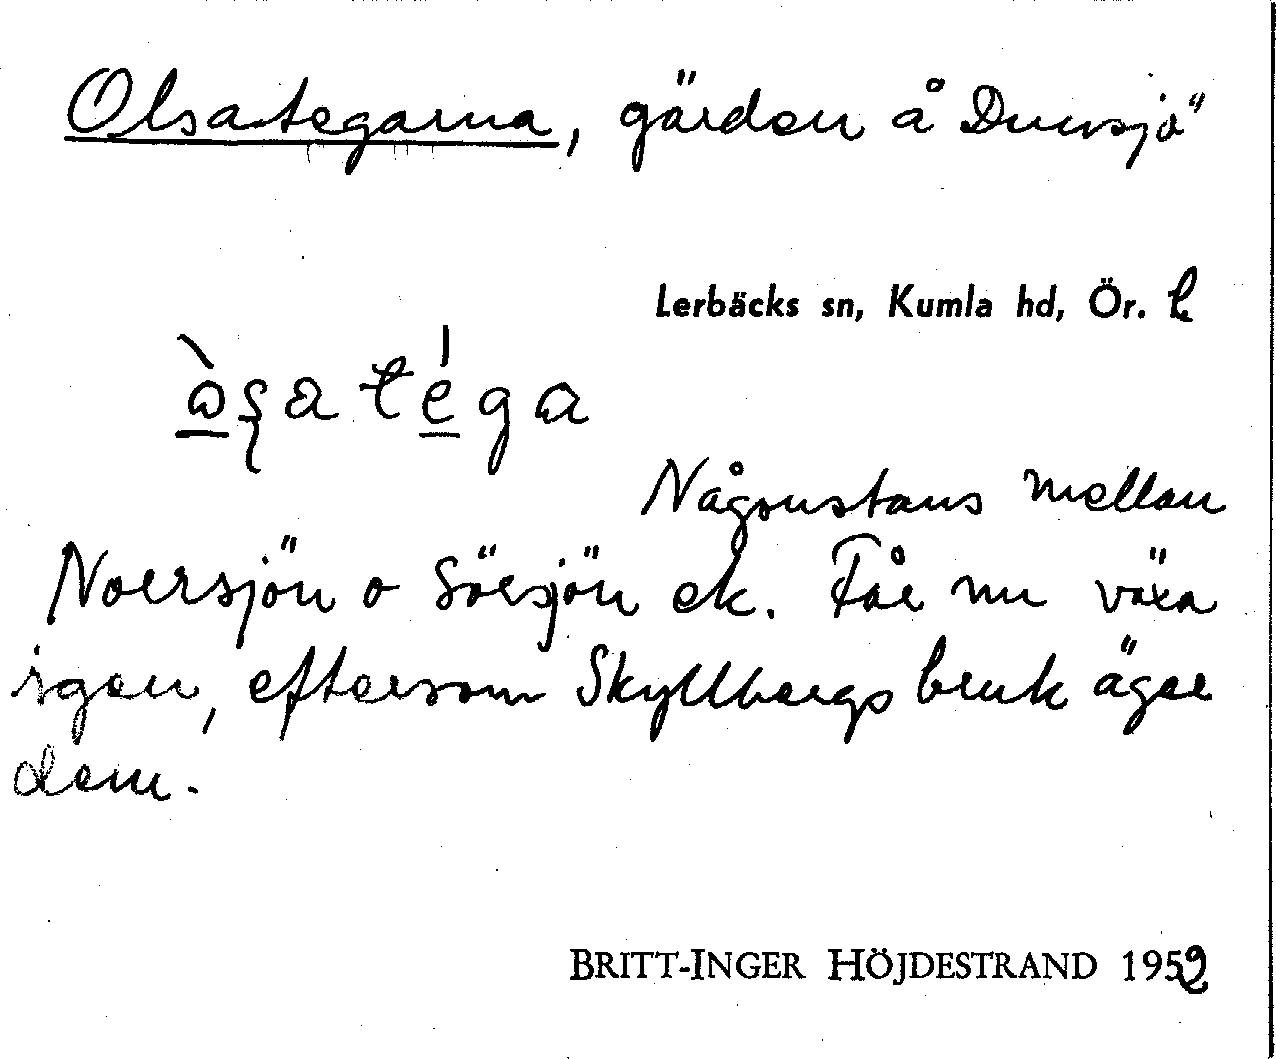 Olsategarna, gärden å Dunsjö
Lerbäcks sn, Kumla hd, Ör. l.
Någonstans mellan
Norrsjön o Sörsjön ek. Får nu växa
igen, eftersom Skyllbergs bruk äger
dem.
BRITT-INGER HÖJDESTRAND 1952